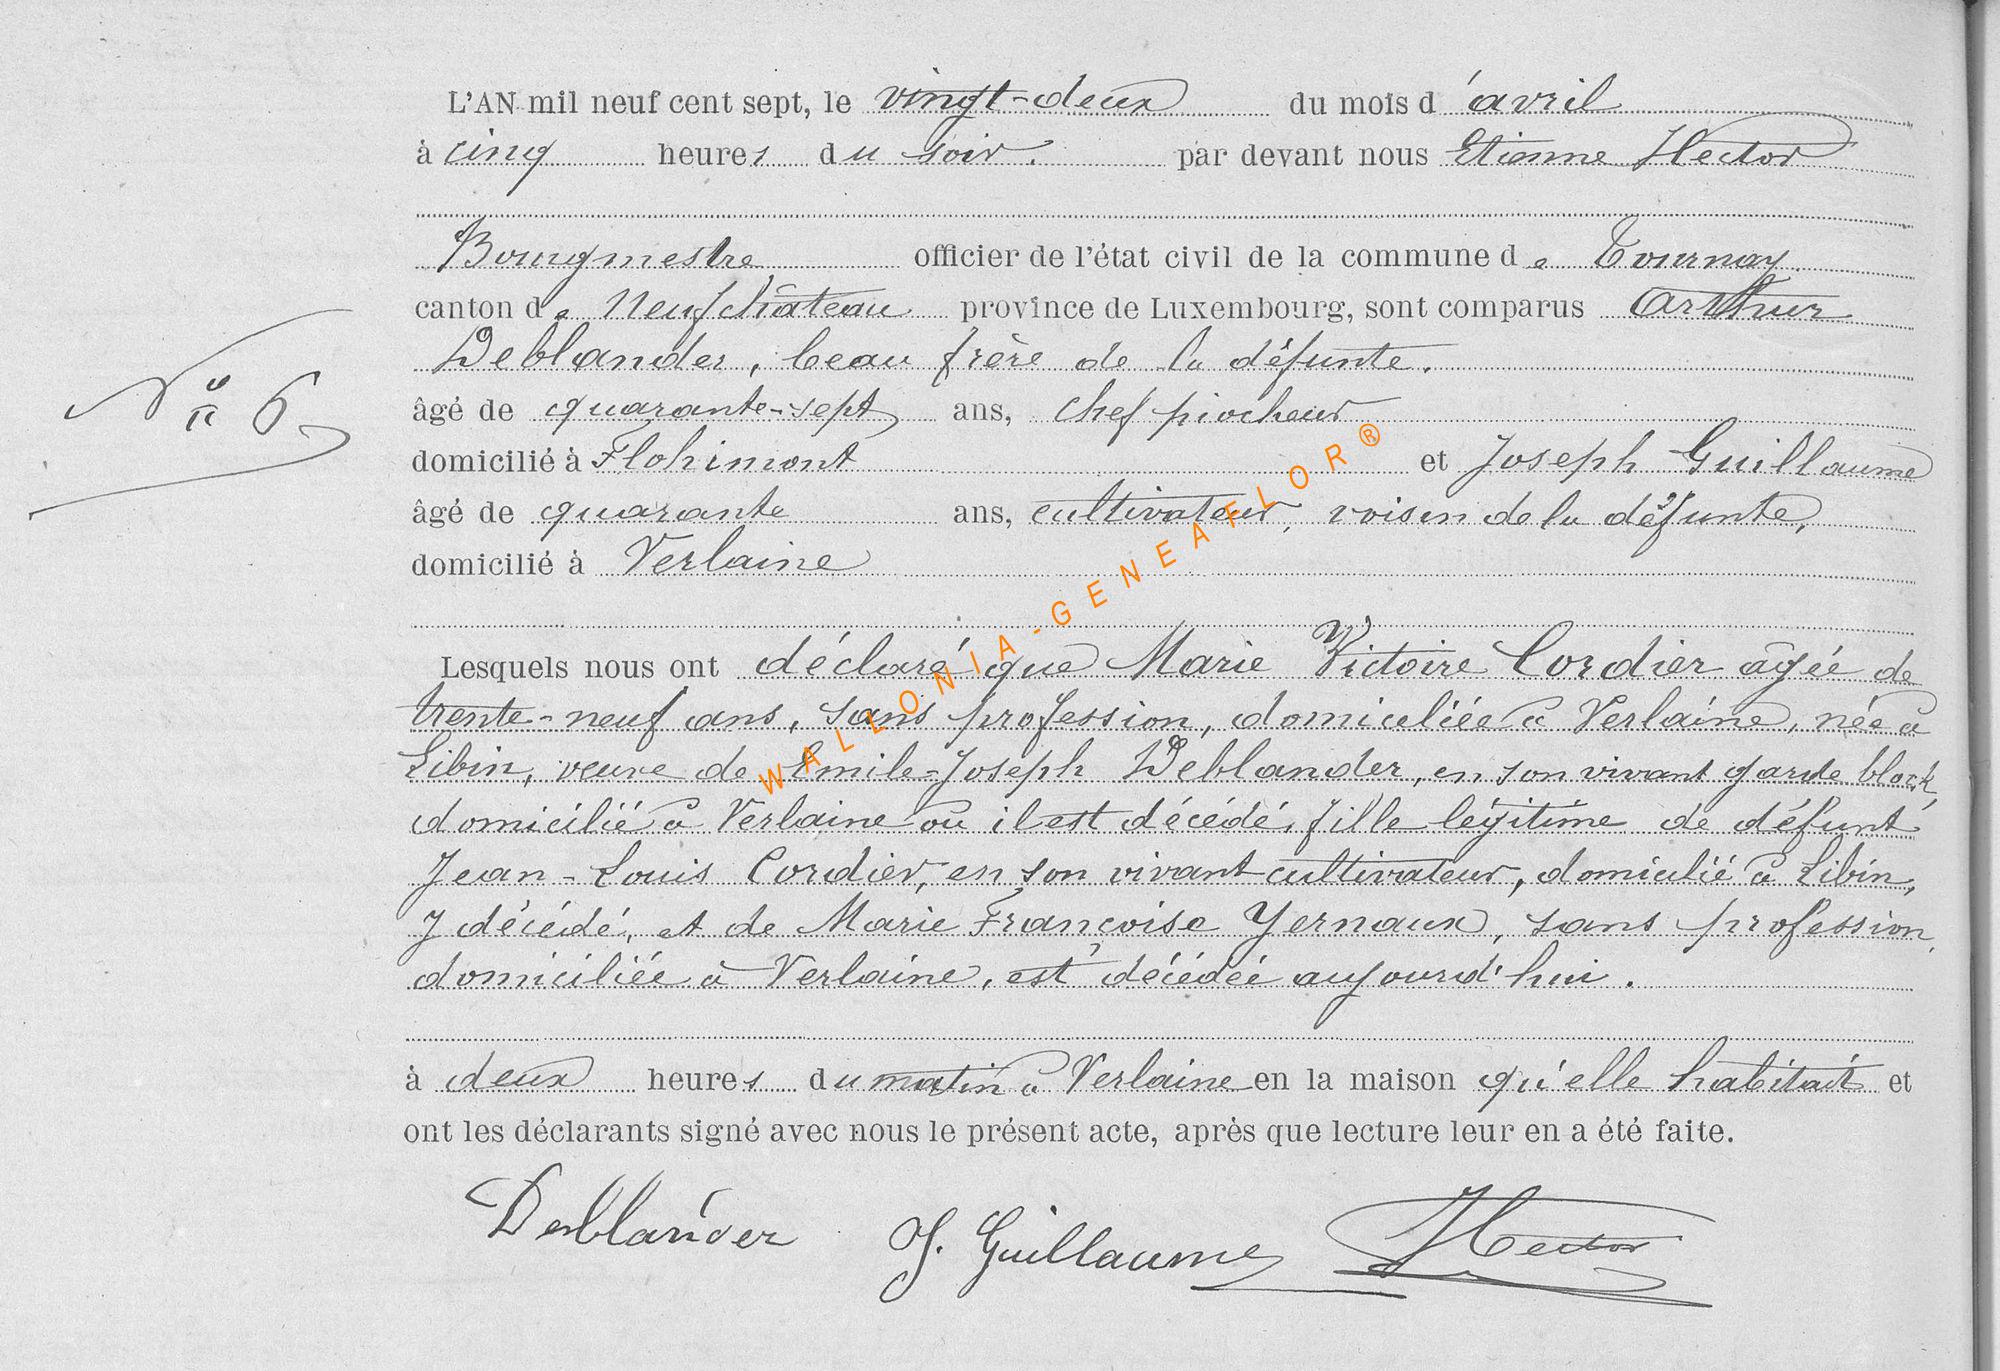 L'AN mil neuf cent sept, le vingt-deux du mois d'avril
à cinq heures du soir. par devant nous Etienne Hector
Bourgmestre, officier de l'état civil de la commune de Tournay.
canton de Neufchâteau province de Luxembourg, sont comparus Arthur
Deblander, beau frère de la défunte.
N° 6
âgé de quarante-sept ans, chef piocheur
domicilié à Flohimont et Joseph Guillaume
âgé de quarante ans, cultivateur, voisin de la défunte,
domicilié à Verlaine
Lesquels nous ont déclaré que Marie Victoire Cordier âgée de
trente-neuf ans, sans profession, domiciliée à Verlaine, née à
Libin, veuve de Emile-Joseph Deblander, en son vivant garde block
domicilié à Verlaine où il est décédé, fille légitime de défunt
Jean-Louis Cordier, en son vivant cultivateur, domicilié à Libin,
y décédé, et de Marie Françoise Yernaux, sans profession,
domiciliée à Verlaine, est décédée aujourd'hui.
à deux heures du matin à Verlaine en la maison qu'elle habitait et
ont les déclarants signé avec nous le présent acte, après que lecture leur en a été faite.
Deblander J. Guillaume Hector
WALLONIA-GENEAFLOR®